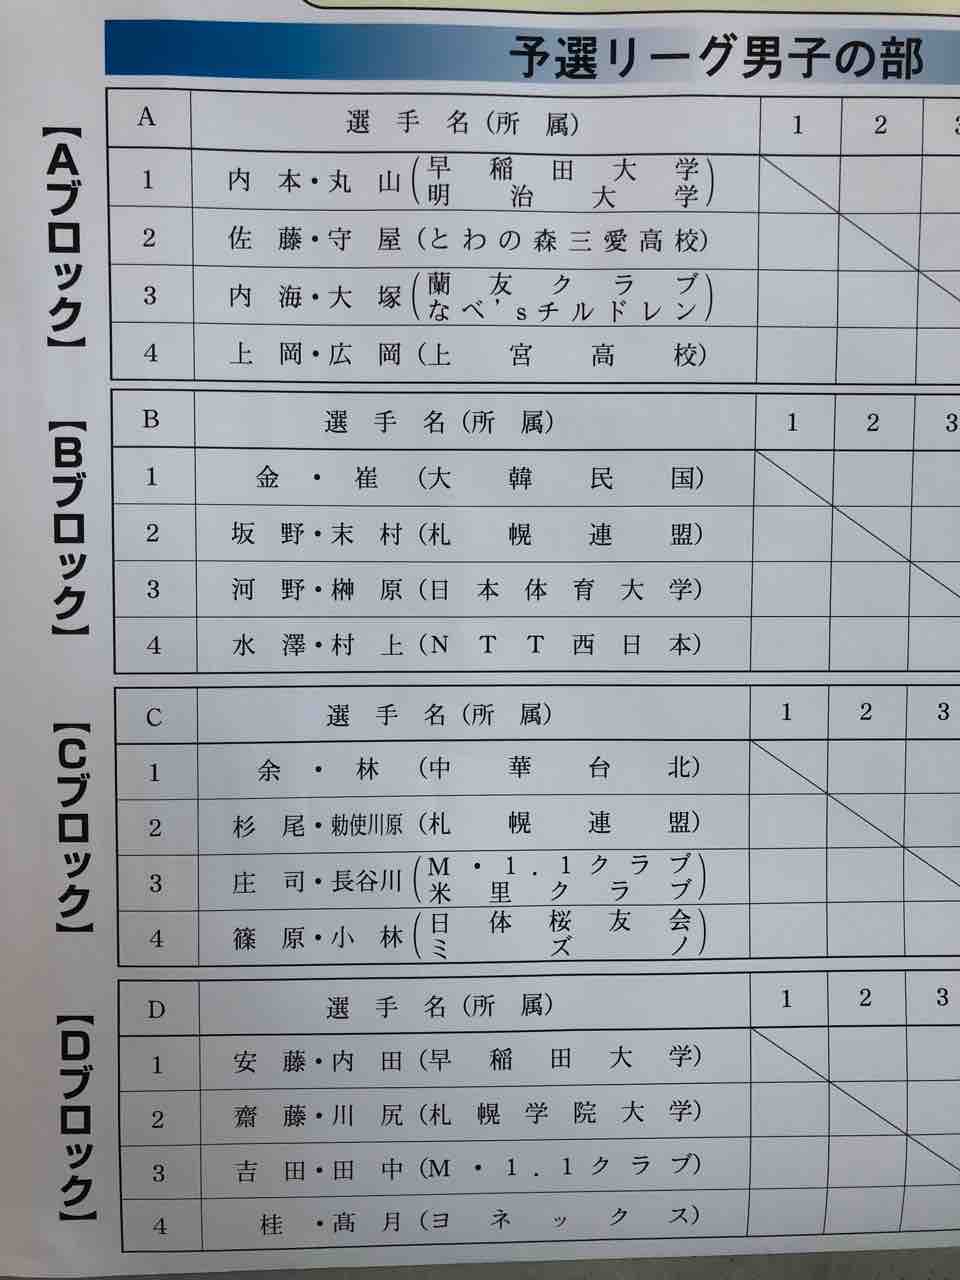 予選リーグ男子の部
【Aブロック】
A 選手名(所属) 1 2 3
1 内本・丸山(早稲田大学
明治大学)
2 佐藤・守屋(とわの森三愛高校)
3 内海・大塚(蘭友クラブ
なべ'sチルドレン)
4 上岡・広岡(上宮高校)
【Bブロック】
B 選手名(所属) 1 2 3
1 金・崔(大韓民国)
2 坂野・末村(札幌連盟)
3 河野・榊原(日本体育大学)
4 水澤・村上(NTT西日本)
【Cブロック】
C 選手名(所属) 1 2 3
1 余・林(中華台北)
2 杉尾・勅使川原(札幌連盟)
3 庄司・長谷川(M・1.1クラブ
米里クラブ)
4 篠原・小林(日体桜友会
ミズノ)
【Dブロック】
D 選手名(所属) 1 2 3
1 安藤・内田(早稲田大学)
2 齋藤・川尻(札幌学院大学)
3 吉田・田中(M・1.1クラブ)
4 桂・髙月(ヨネックス)